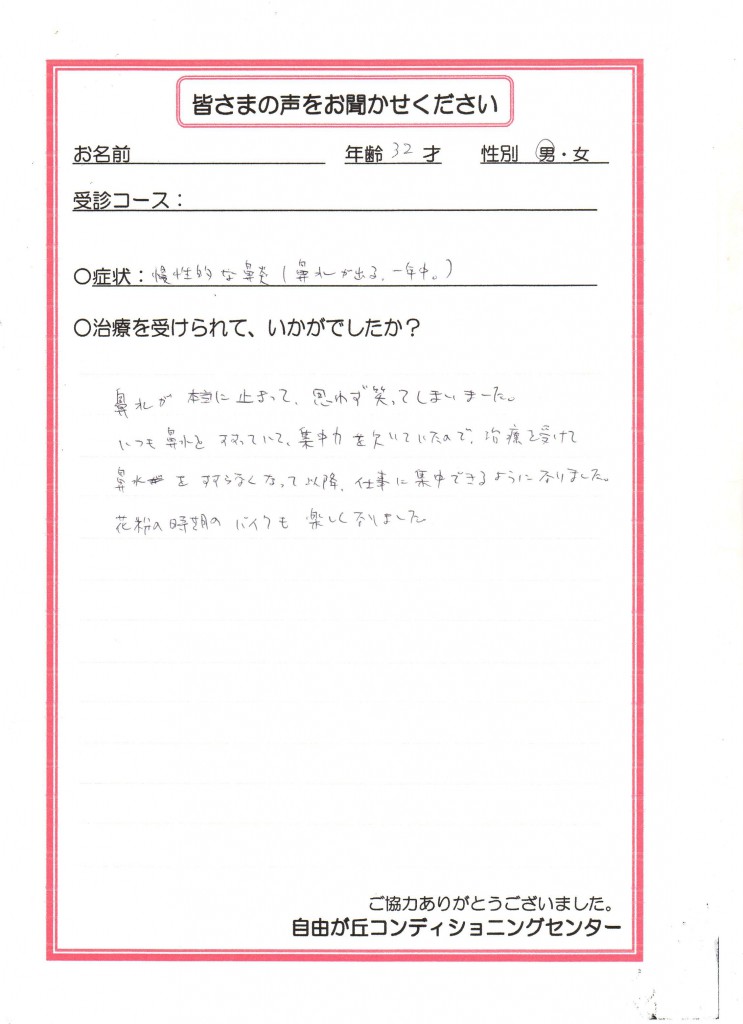 皆さまの声をお聞かせください
お名前 年齢 32 才 性別 男・女
受診コース：
○症状：慢性的な鼻炎(鼻水が出る、一年中。)
○治療を受けられて、いかがでしたか？
鼻水が本当に止まって、思わず笑ってしまいました。
いつも鼻水をすすっていて、集中力を欠いていたので、治療を受けて
鼻水をすすらなくなって以降、仕事に集中できるようになりました。
花粉の時期のバイクも楽しくなりました
ご協力ありがとうございました。
自由が丘コンディショニングセンター